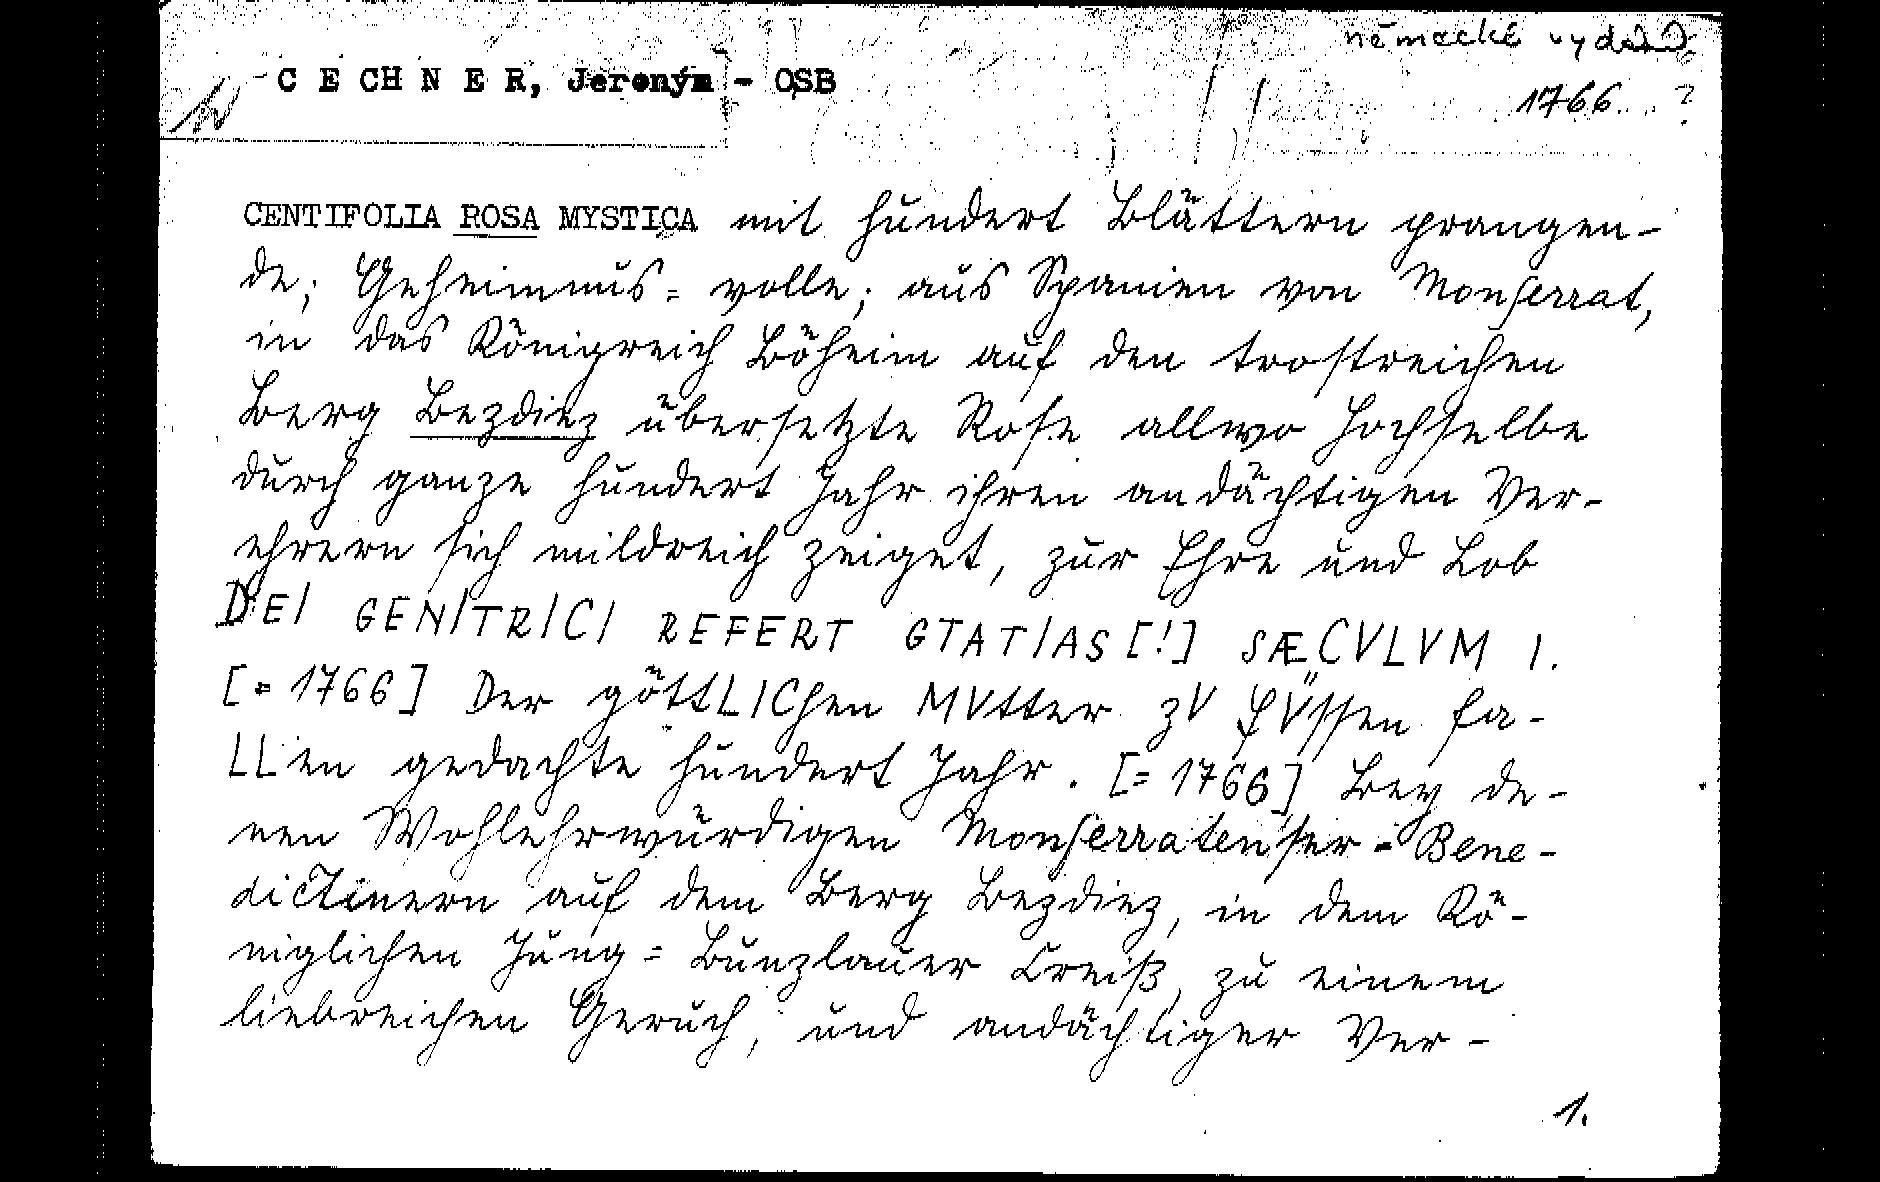 německé vydání
C E CH N E R, Jeroným - OSB
1766 ?
CENTIFOLIA ROSA MYSTICA mit hundert Blättern prangen-
de; Geheimnus= volle; aus Spanien von Monserrat,
in das Königreich Böheim auf den trostreichen
Berg Bezdiez übersetzte Rose allwo Hochselbe
durch ganze hundert Jahr ihren andächtigen Ver-
ehrern sich mildreich zeiget, zur Ehre und Lob
DEI GENITRICI REFERT GTATIAS [!] SÆCVLVM I.
[= 1766] Der göttLIChen MVtter zV fVssen fa-
LLen gedachte hundert Jahr. [= 1766] Bey de-
nen Wohlehrwürdigen Monserratenser-Bene-
dictinern auf dem Berg Bezdiez, in dem Kö-
niglichen Jung= Bunzlauer Creiß, zu einem
liebreichen Geruch, und andächtiger Ver-
1.